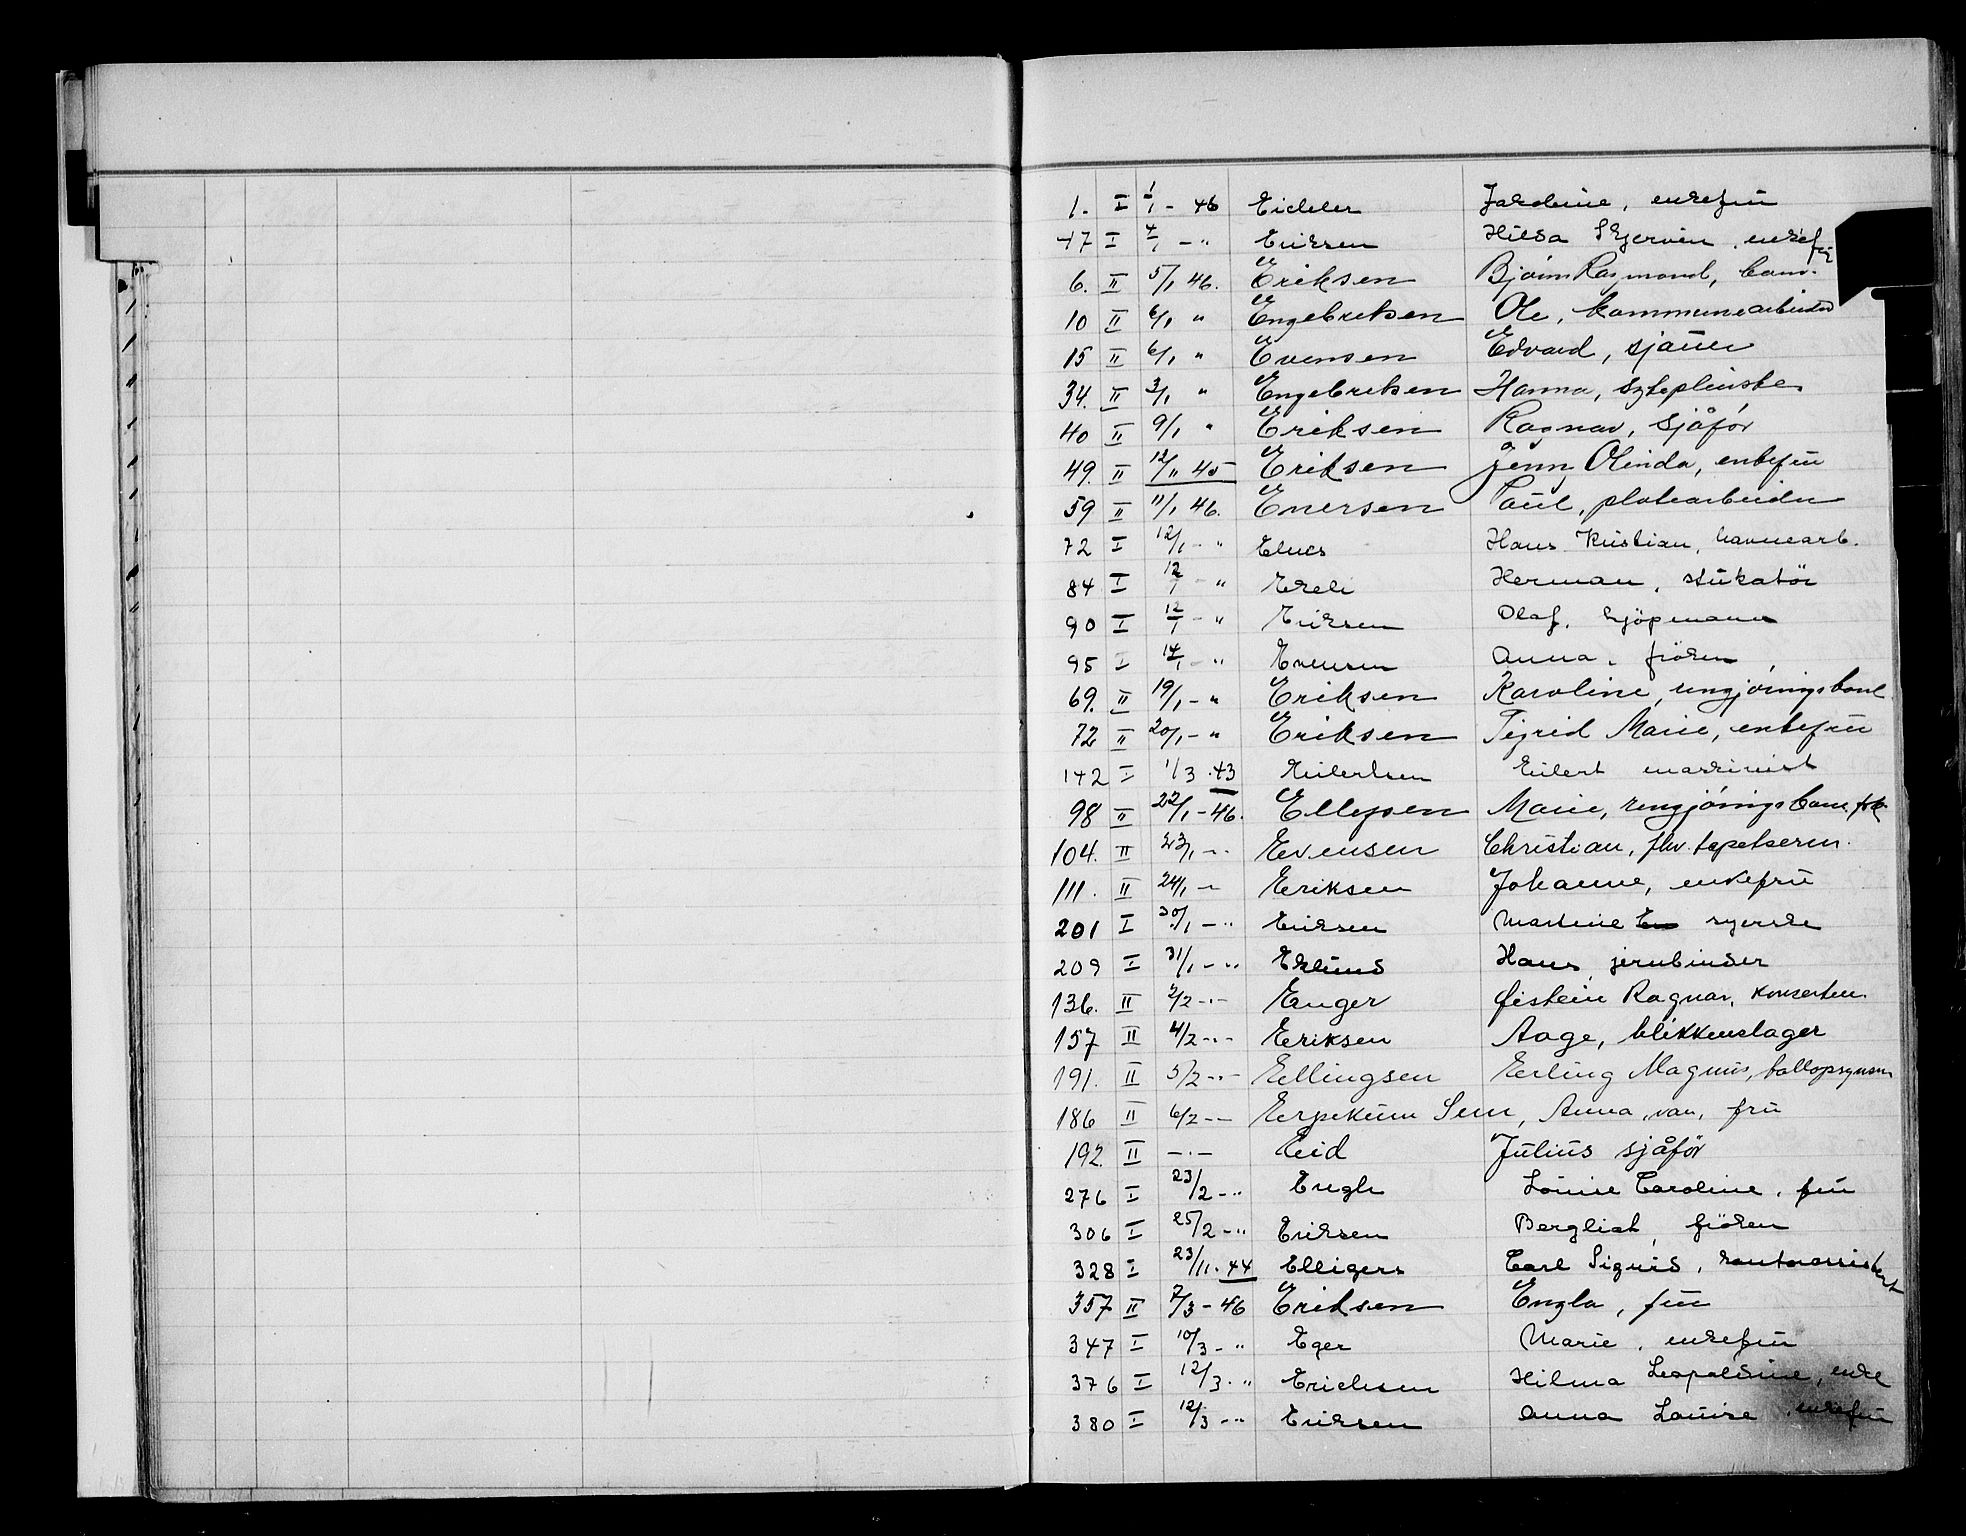 1. I 1/1 - 46 Eichler Jakobine, enkefrü
17 I 4/1 - " Eriksen Hilda Skjerven, enkefrü
6. II 5/1 46. Eriksen Bjørn Raymond, barn.
10 II 6/1 " Engebretsen Ole, kommunearbeider
15 II 6/1 " Evensen Edvard, sjauer
34. II 3/1 " Engebretsen Hanna, sykepleierske
40 II 9/1 " Eriksen Ragnar, sjåfør
49. II 12/11 45 Eriksen Jenny Olinda, enkefrü
59 II 11/1 46. Enersen Paul, platearbeider
72 I 12/1 - " Hans Kristian, havnearb.
84 I 12/1 - " Ekeli Herman, stükatør
90 I 12/1 - " Eriksen Olaf, kjøpmann
95 I 14/1 - " Evensen Anna, frøken
69. II 19/1 - " Eriksen Karoline, rengjøringsbest.
72 II 20/1 - " Eriksen Sigrid Marie, enkefrü
142 I 1/3 . 43 Eilertsen Eilert maskinist
98 II 22/1 - 46. Ellefsen Marie,
104. II 23/1 - " Evensen Christian, fhv. tapetserer.
111. II 24/1 - Eriksen Johanne, enkefrü
201 I 30/1 - " Eriksen Martine syerske
209 I 31/1 - " Eklünd Hans, jernbinder
136. II 2/2 - " - Enger Øistein Ragnar,
157 II 4/2 - " - Eriksen Aage, blikkenslager
191. II 5/2 - " - Ellingsen Erling Magnus,
186 II 6/2 - - Sem, Anna, van, frü
192. II - " - Eid Jülius sjåfør
276 I 23/2 - " Engh Louise Caroline, frü
306 I 25/2 - " Eriksen Bergliot, frøken
328 I 23/11. 44 Elligers Carl Sigurd, kontorassistent
357 II 7/3 - 46 Eriksen Engla, frü
347 I 10/3 - " Eger Marie, enkefrü
376 I 12/3 - " Erichsen Hilma Leopoldine, enke
380 I 12/3 - " Eriksen Anna Louise, enkefrü